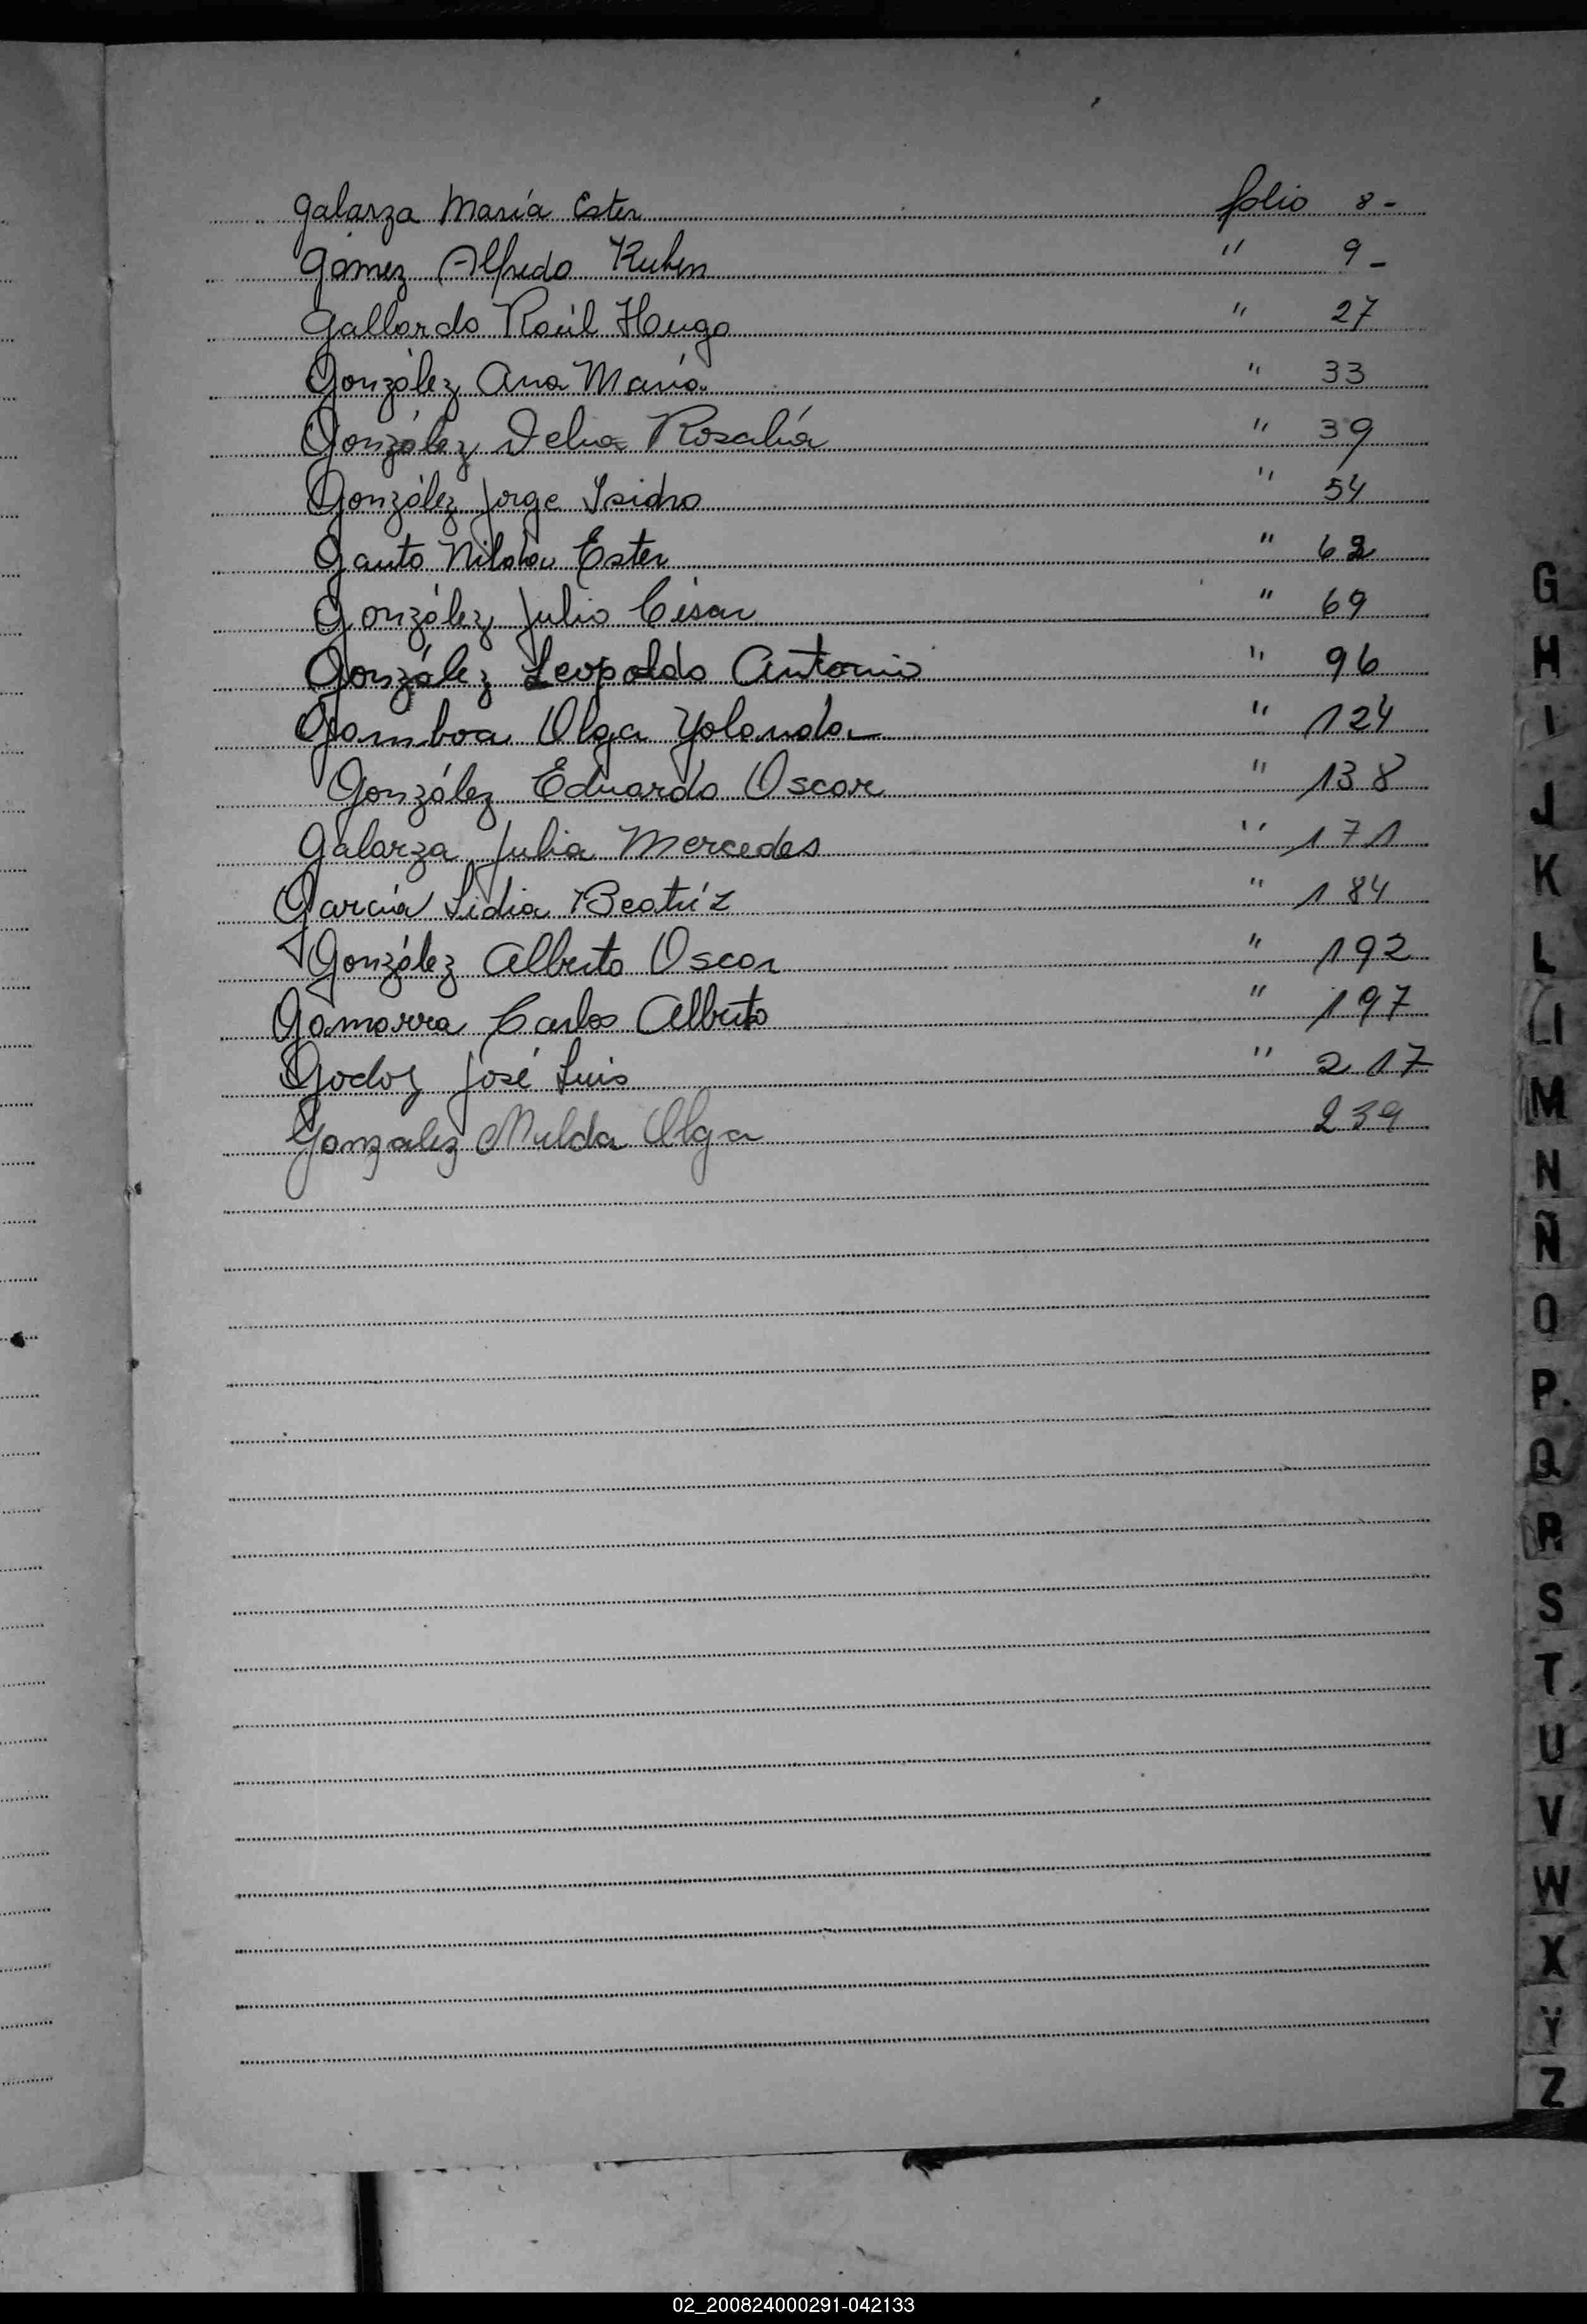 Galarza María Ester folio 8-
Gómez Alfredo Ruben " 9-
Gallardo Raúl Hugo " 27
González Ana María " 33
González Delia Rosalía " 39
González Jorge Isidro " 54
Gauto Nilda Ester " 62
González Julio César " 69
González Leopoldo Antonio " 96
Gamboa Olga Yolanda " 124
González Eduardo Oscar " 138
Galarza Julia Mercedes " 171
García Lidia Beatríz " 184
González Alberto Oscar " 192
Gamarra Carlos Alberto " 197
Godoy José Luis " 217
Gonzalez Olga 239
G
H
I
J
K
L
Ll
M
N
Ñ
O
P
Q
R
S
T
U
V
W
X
Y
Z
02_200824000291-042133